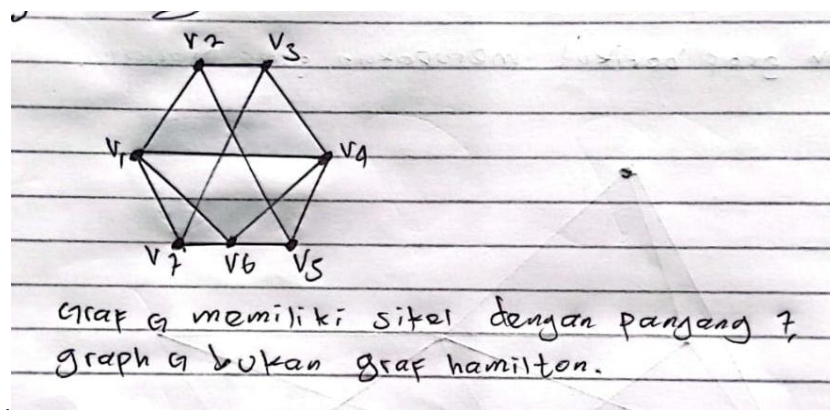 V2 V3
V1 V4
V7 V6 V5
Graf G memiliki sikel dengan panjang 7,
graph G bukan graf hamilton.